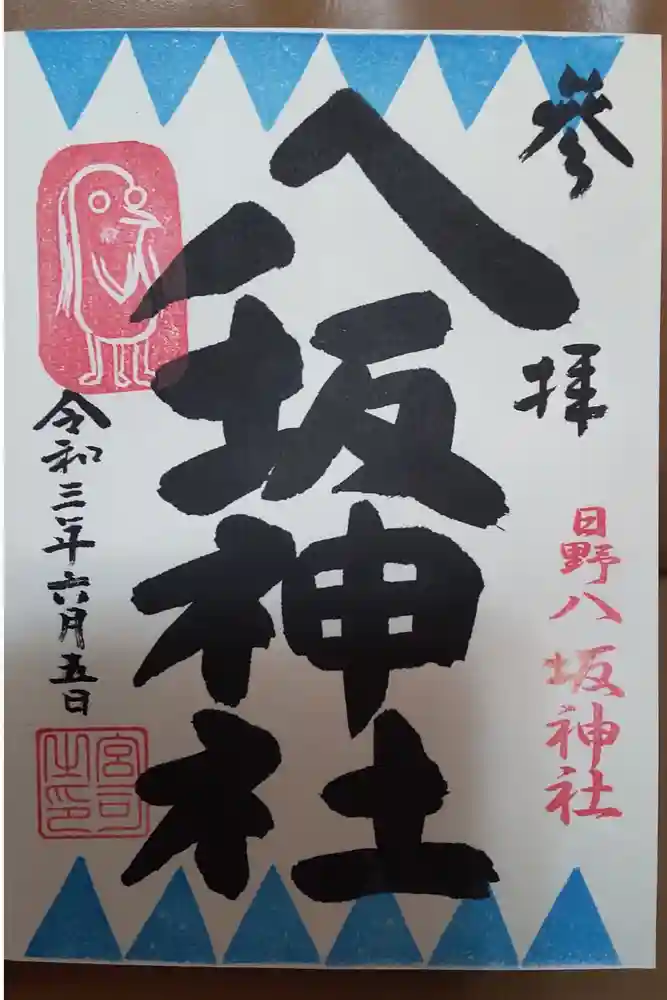 參拝
日野八坂神社
八坂神社
令和三年六月五日
宮司之印